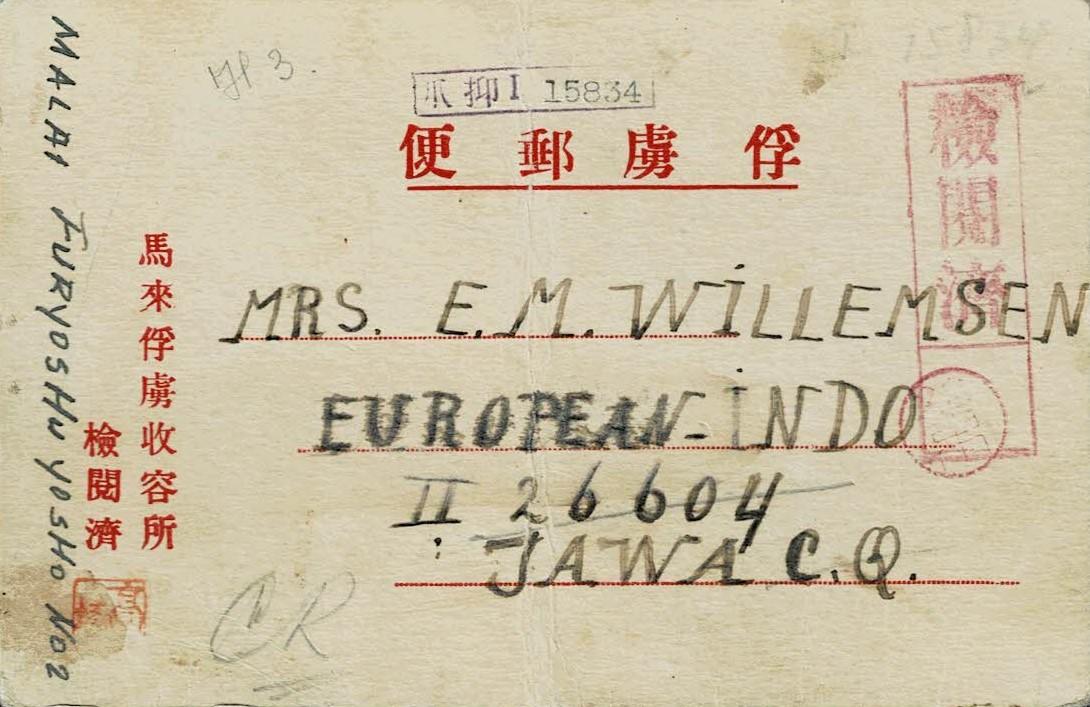 爪抑I 15834
俘虜郵便
檢閱濟
MRS. E.M. WILLEMSEN
EUROPEAN-INDO
II 26604
JAWA C.Q.
馬來俘虜收容所
檢閱濟
MALAI FURYOSHU YOSHO NO2
CR